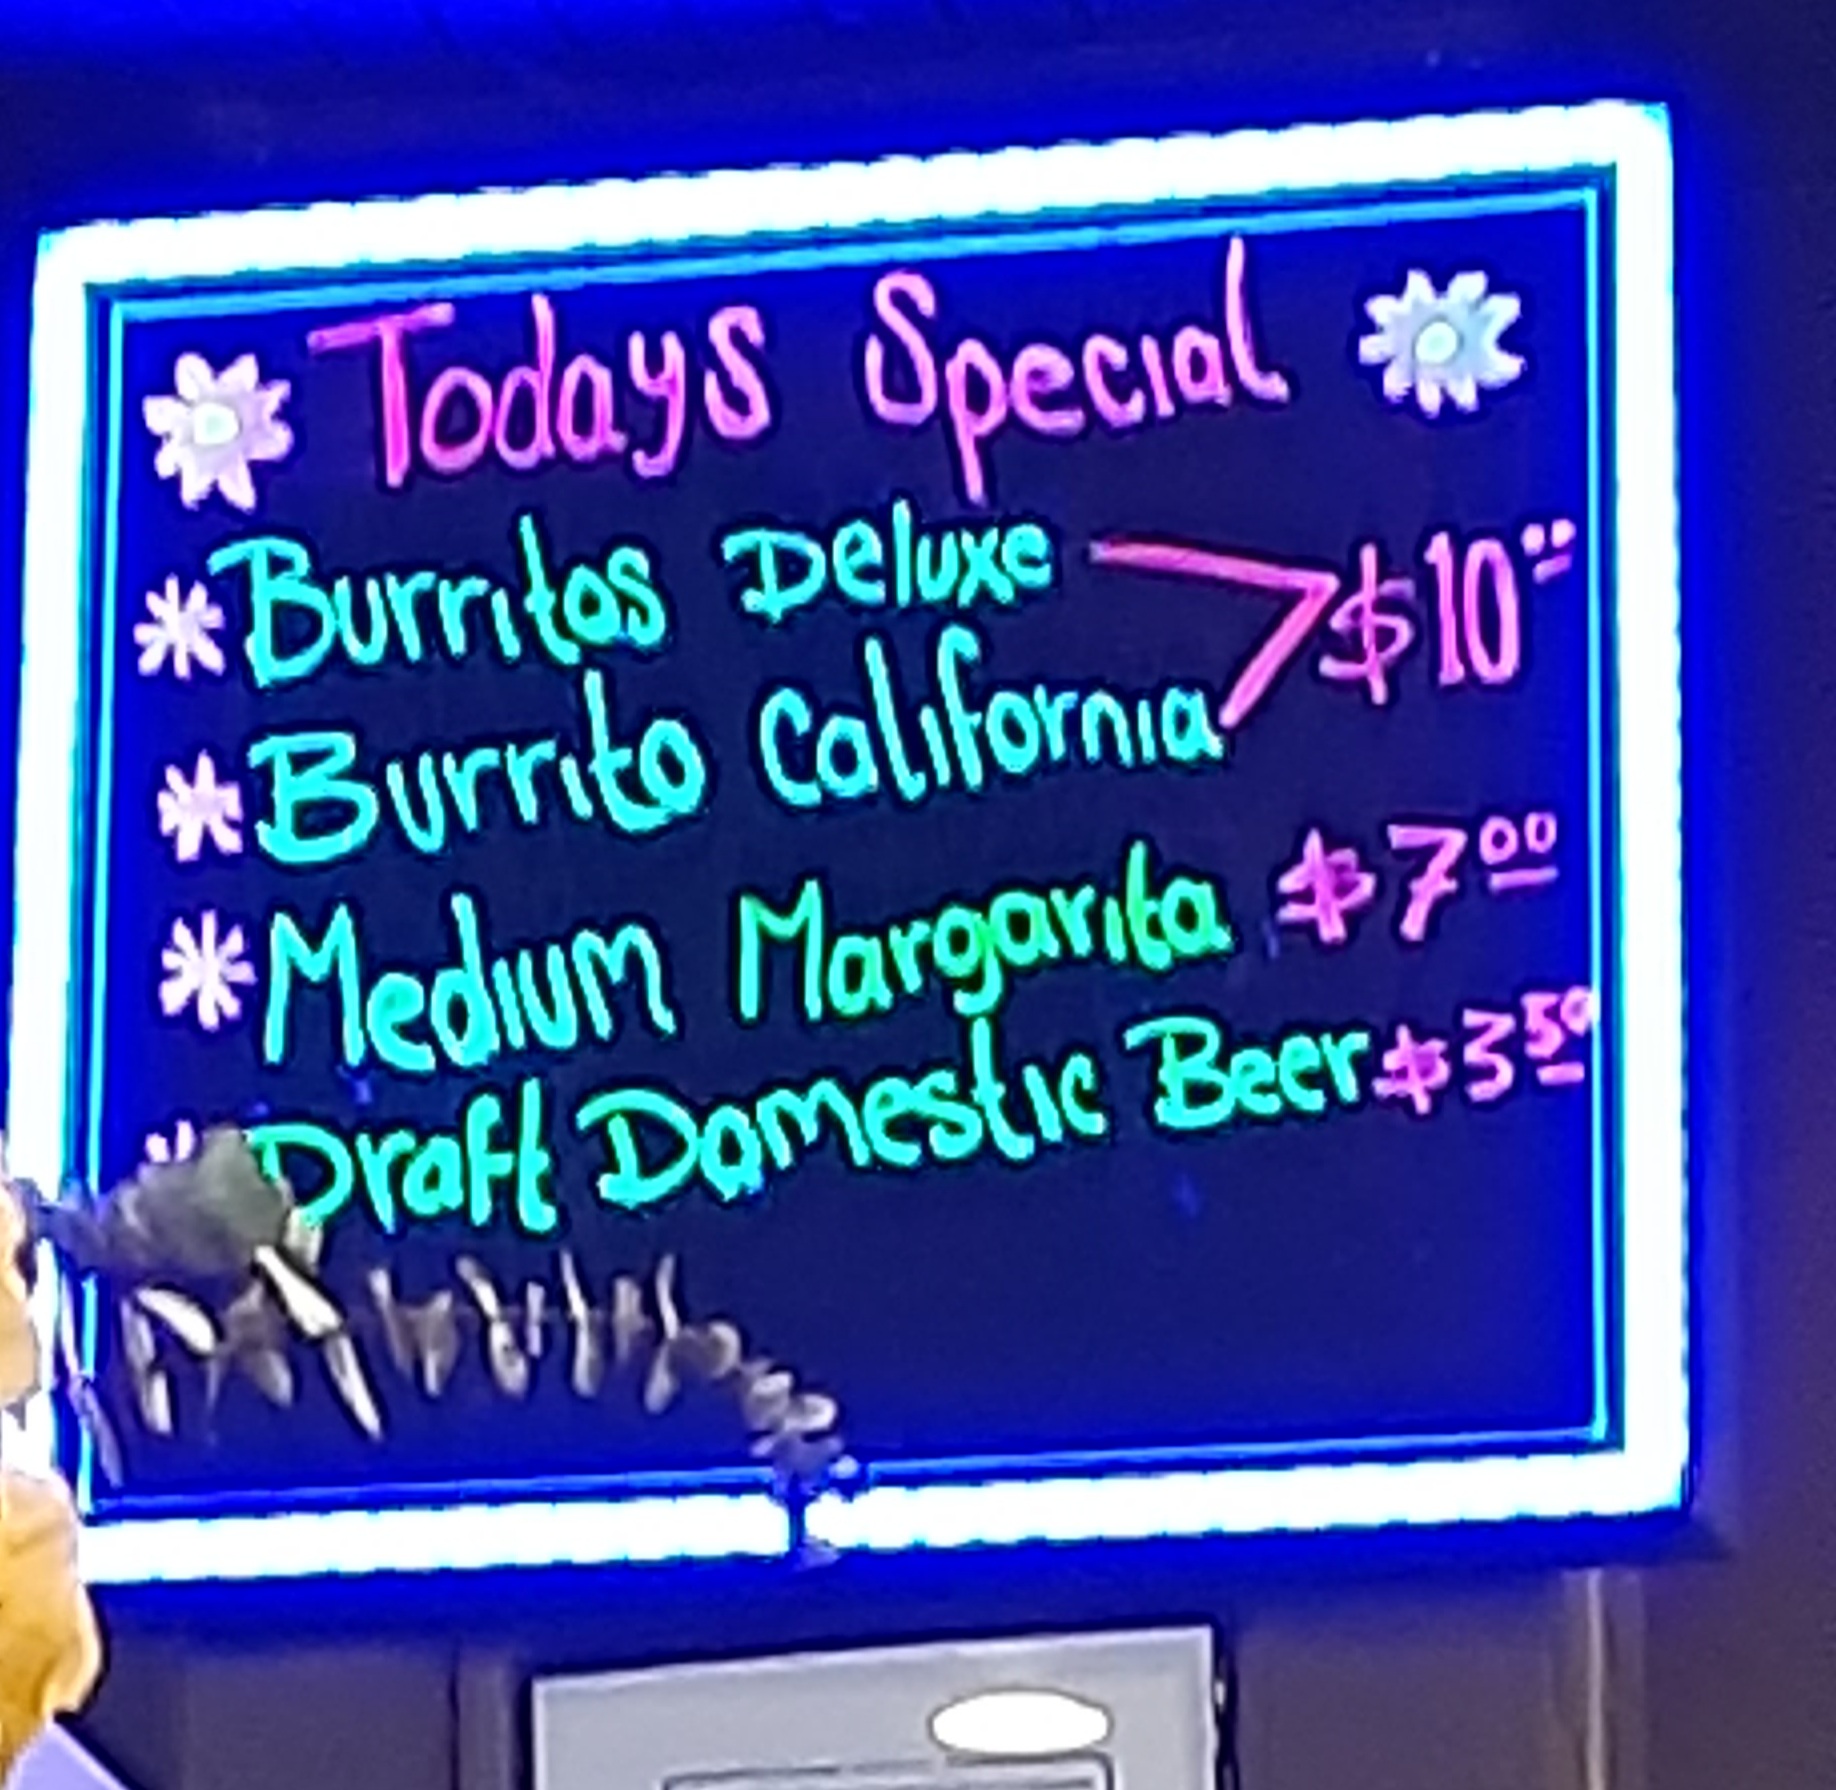 Todays Special
* Burritos Deluxe $10.00
* Burrito California
* Medium Margarita $7.00
* Draft Domestic Beer $3.50